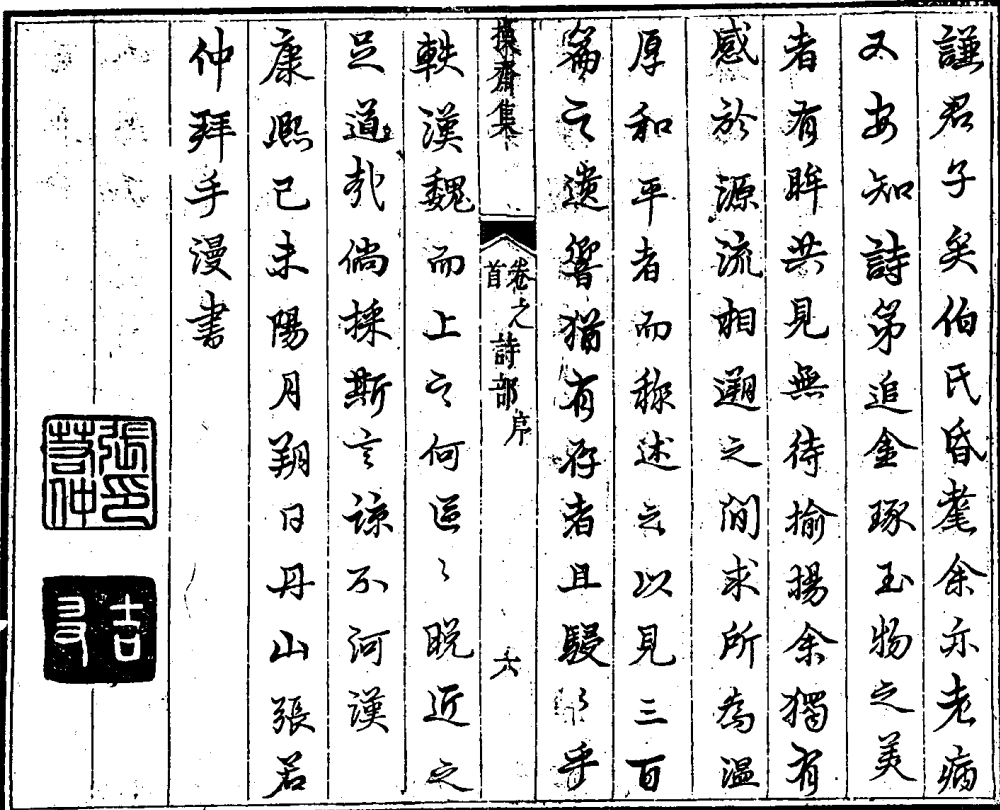 謙君子矣伯氏昏耄余亦老病
又安知詩第追金琢玉物之美
者有眸共見無待揄揚余獨有
感於源流相遡之間求所為溫
厚和平者而称述之以見三百
篇之遺響猶有存者且駸〻乎
操齋集
卷之首
詩部
序
六
軼漢魏而上之何區〻晩近之
足道㢤倘採斯言諒不河漢
康熙己未陽月朔日丹山張若
仲拜手漫書
張若仲印
吉友